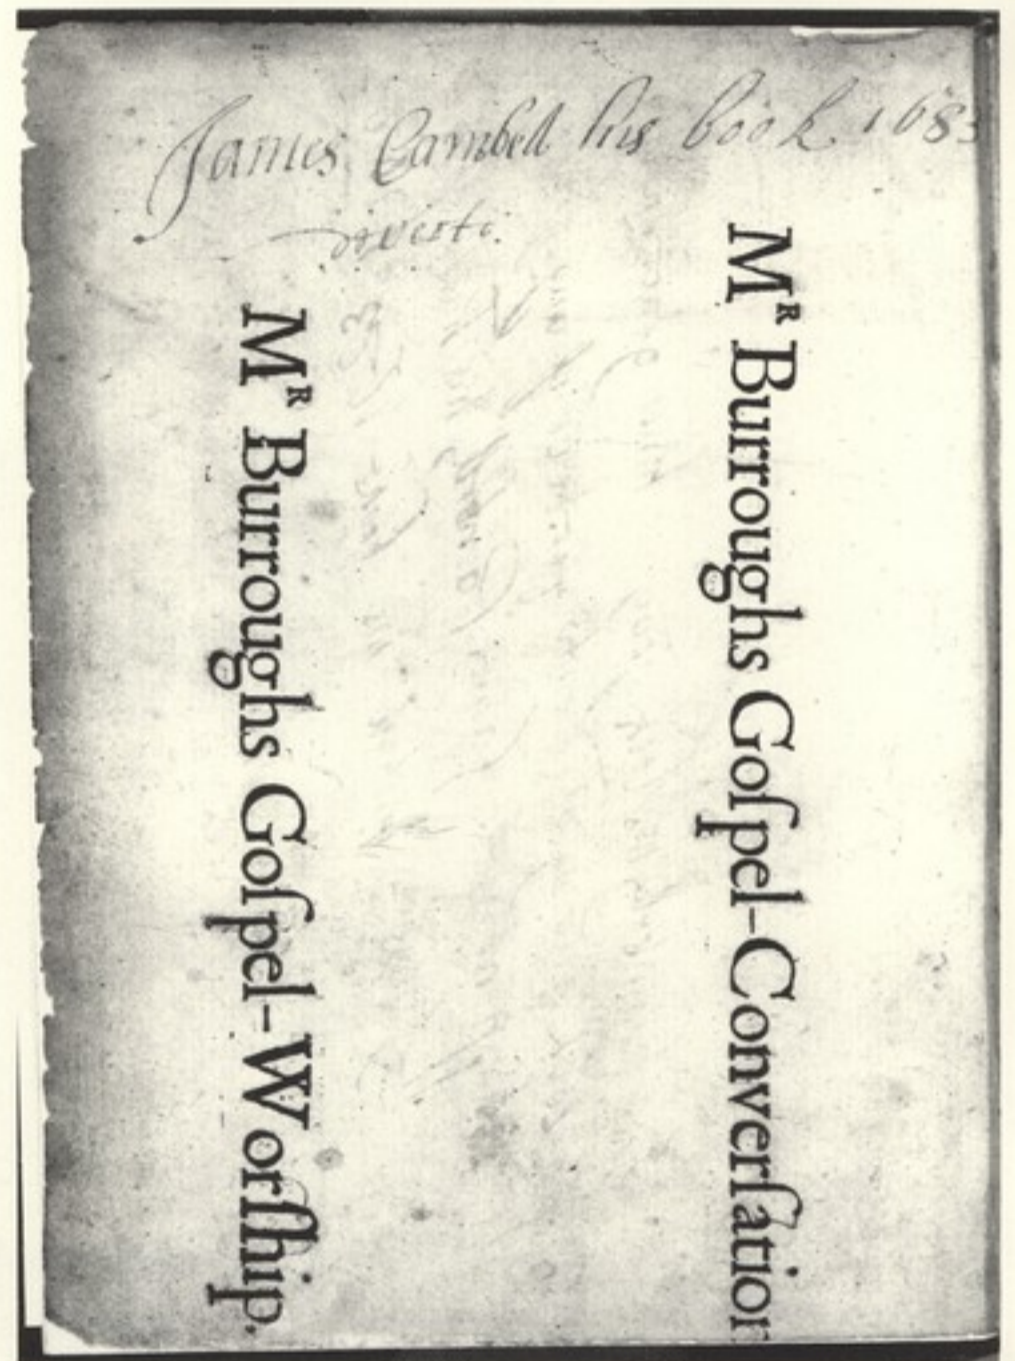 James Cambell his book 1683
Mᴿ Burroughs Goſpel-Converſation
Mᴿ Burroughs Goſpel-Worſhip.